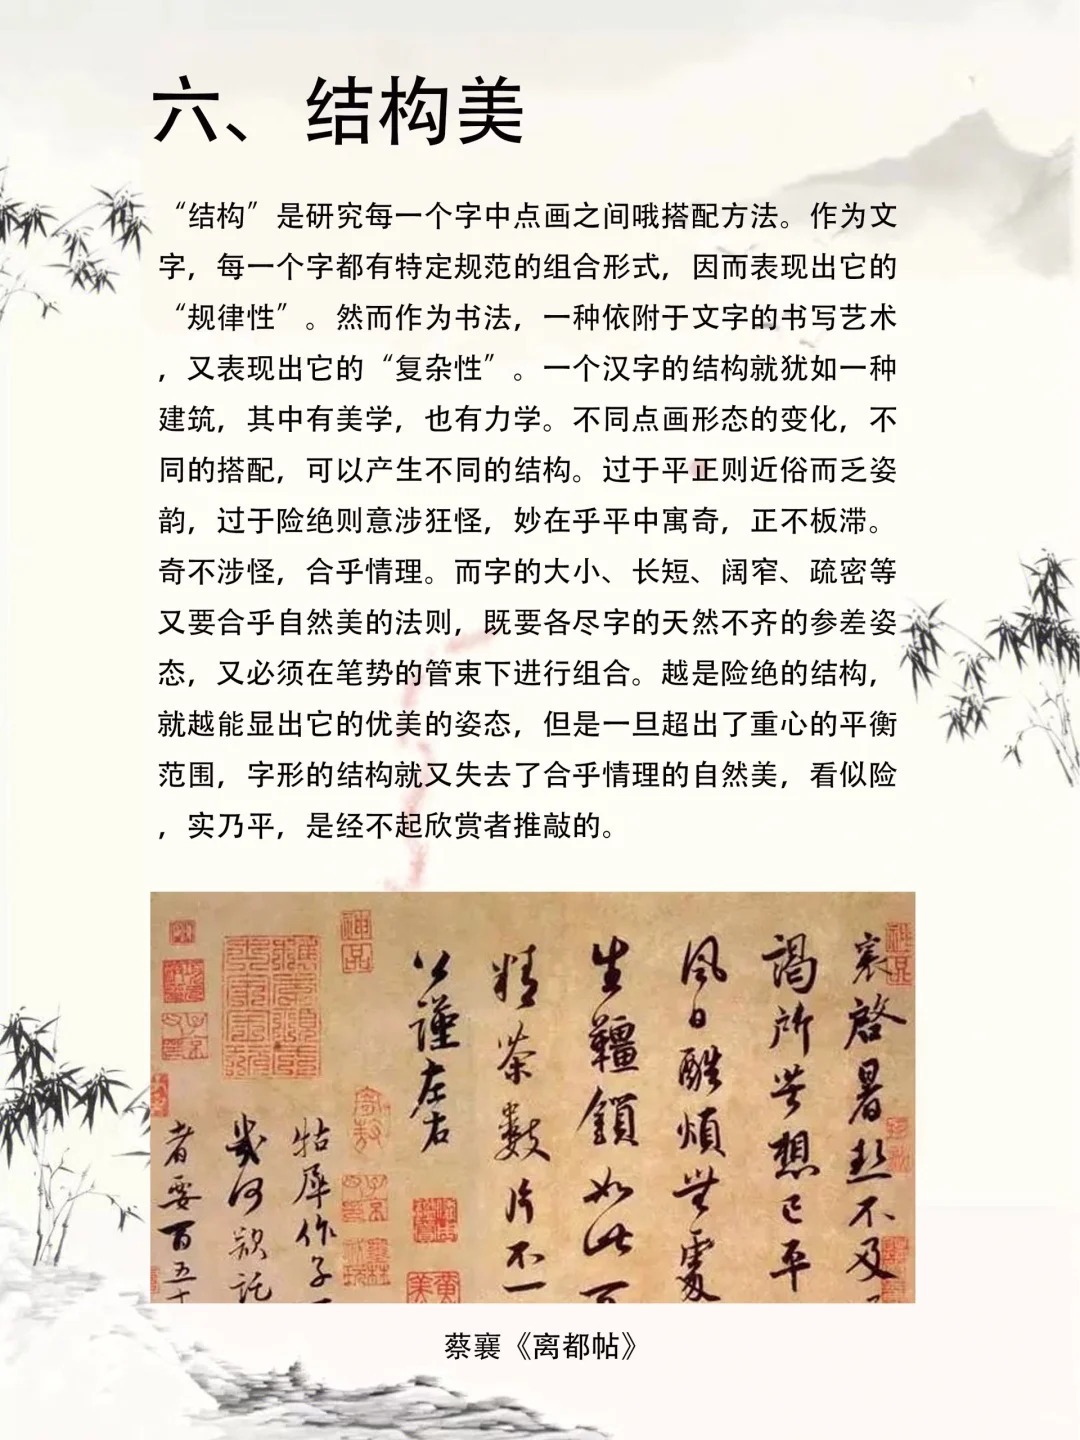 六、结构美
“结构”是研究每一个字中点画之间哦搭配方法。作为文
字，每一个字都有特定规范的组合形式，因而表现出它的
“规律性”。然而作为书法，一种依附于文字的书写艺术
，又表现出它的“复杂性”。一个汉字的结构就犹如一种
建筑，其中有美学，也有力学。不同点画形态的变化，不
同的搭配，可以产生不同的结构。过于平正则近俗而乏姿
韵，过于险绝则意涉狂怪，妙在乎平中寓奇，正不板滞。
奇不涉怪，合乎情理。而字的大小、长短、阔窄、疏密等
又要合乎自然美的法则，既要各尽字的天然不齐的参差姿
态，又必须在笔势的管束下进行组合。越是险绝的结构，
就越能显出它的优美的姿态，但是一旦超出了重心的平衡
范围，字形的结构就又失去了合乎情理的自然美，看似险
，实乃平，是经不起欣赏者推敲的。
襄啓暑热不及
謁所苦想已平
風日酷煩無處
生韁鎖如此百
精茶數片不一
公謹左右
牯犀作子一
幾何欲託
者要百五十
蔡襄《离都帖》